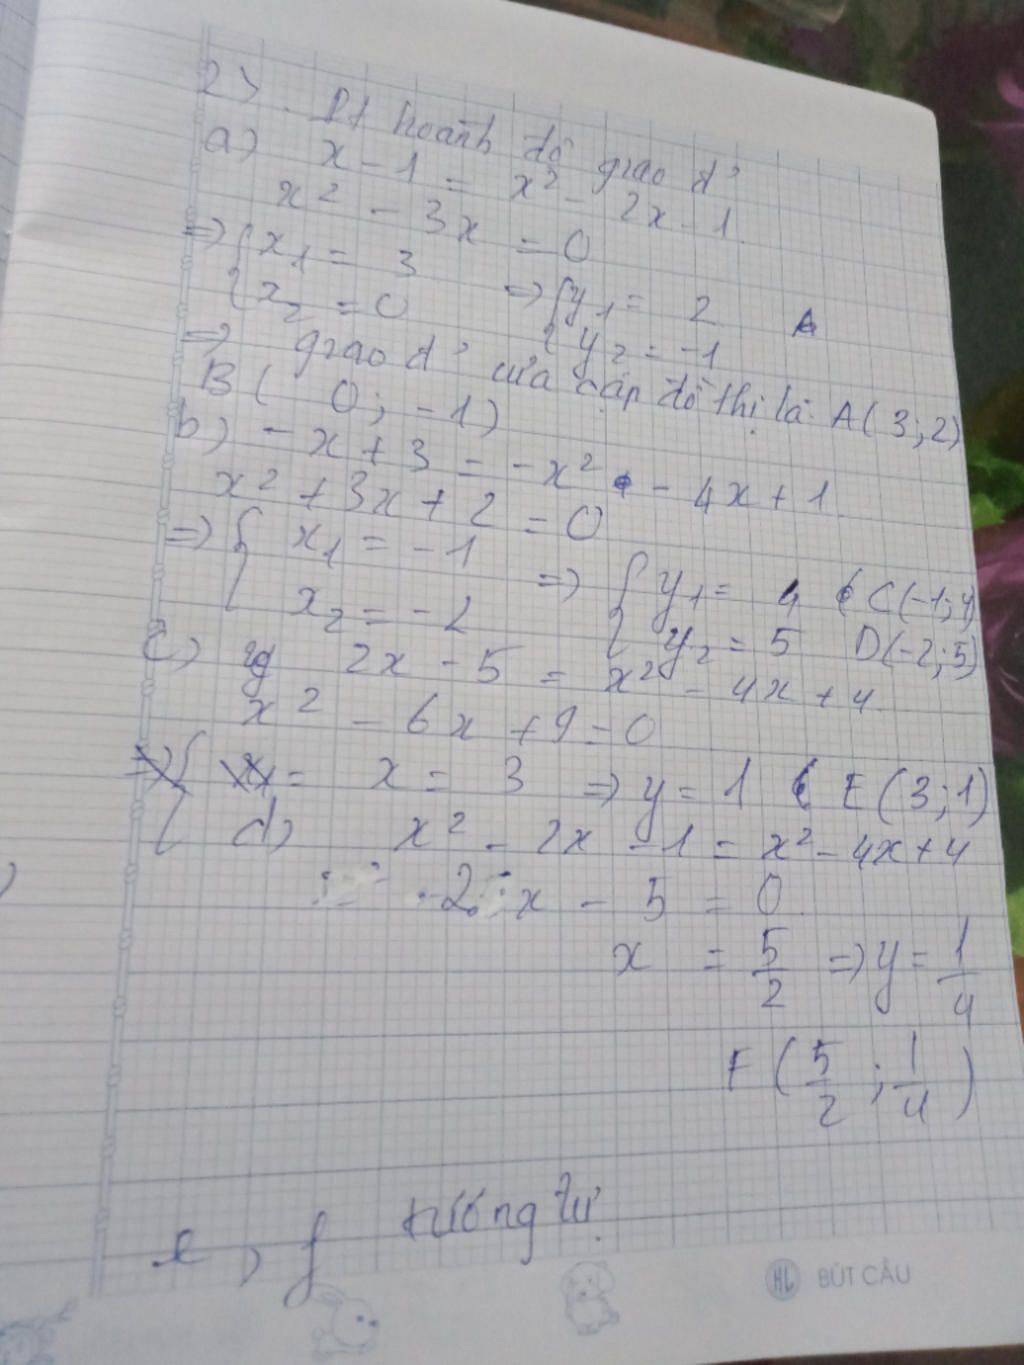 2) Pt hoành độ giao đ'
a) x - 1 = x² - 2x - 1
x² - 3x = 0
=> { x₁ = 3 => { y₁ = 2 A
x₂ = 0 y₂ = -1
=> giao đ' của cặp đồ thị là: A(3;2)
B(0; -1)
b) -x + 3 = -x² - 4x + 1
x² + 3x + 2 = 0
=> { x₁ = -1 => { y₁ = 4 C(-1;4)
x₂ = -2 y₂ = 5 D(-2;5)
c) 2x - 5 = x² - 4x + 4
x² - 6x + 9 = 0
x = 3 => y = 1 E(3;1)
d) x² - 2x - 1 = x² - 4x + 4
2x - 5 = 0
x = 5/2 => y = 1/4
F(5/2; 1/4)
e, f tương tự
HL BÚT CÂU